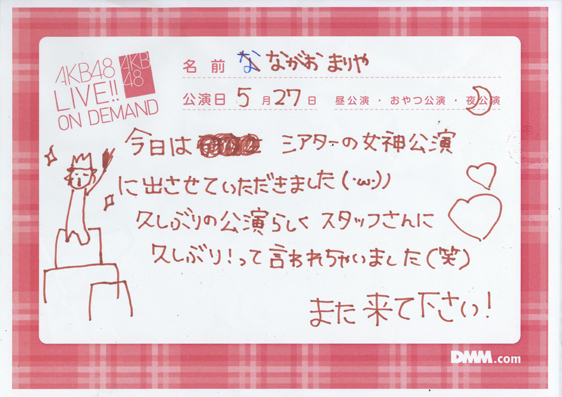 AKB48
LIVE!!
ON DEMAND
AKB
48
名前 な ながお まりや
公演日 5月27日 昼公演・おやつ公演・夜公演
今日は シアターの女神公演
に出させていただきました(・ω・))
久しぶりの公演らしく スタッフさんに
久しぶり!って言われちゃいました(笑)
また来て下さい!
DMM.com